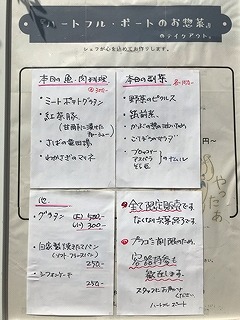 『ハートフル・ポートのお惣菜』
のテイクアウト。
シェフが心を込めてお作りします。
本日の魚・肉料理
・ミートポテトグラタン
・紅茶豚
・さばの竜田揚
・わかさぎのマリネ
本日の副菜
・野菜のピクルス
・筑前煮
・ごぼうのサラダ
・ブロッコリー
アスパラ
そら豆
のナムル
他
・グラタン (大) 500-
(小) 300-
250-
・シフォンケーキ
250-
全て限定販売です。
なくなり次第終了です。
プラゴミ削減のため、
容器持参を
歓迎します。
スタッフにお声かけ
ください。
ハートフル・ポート